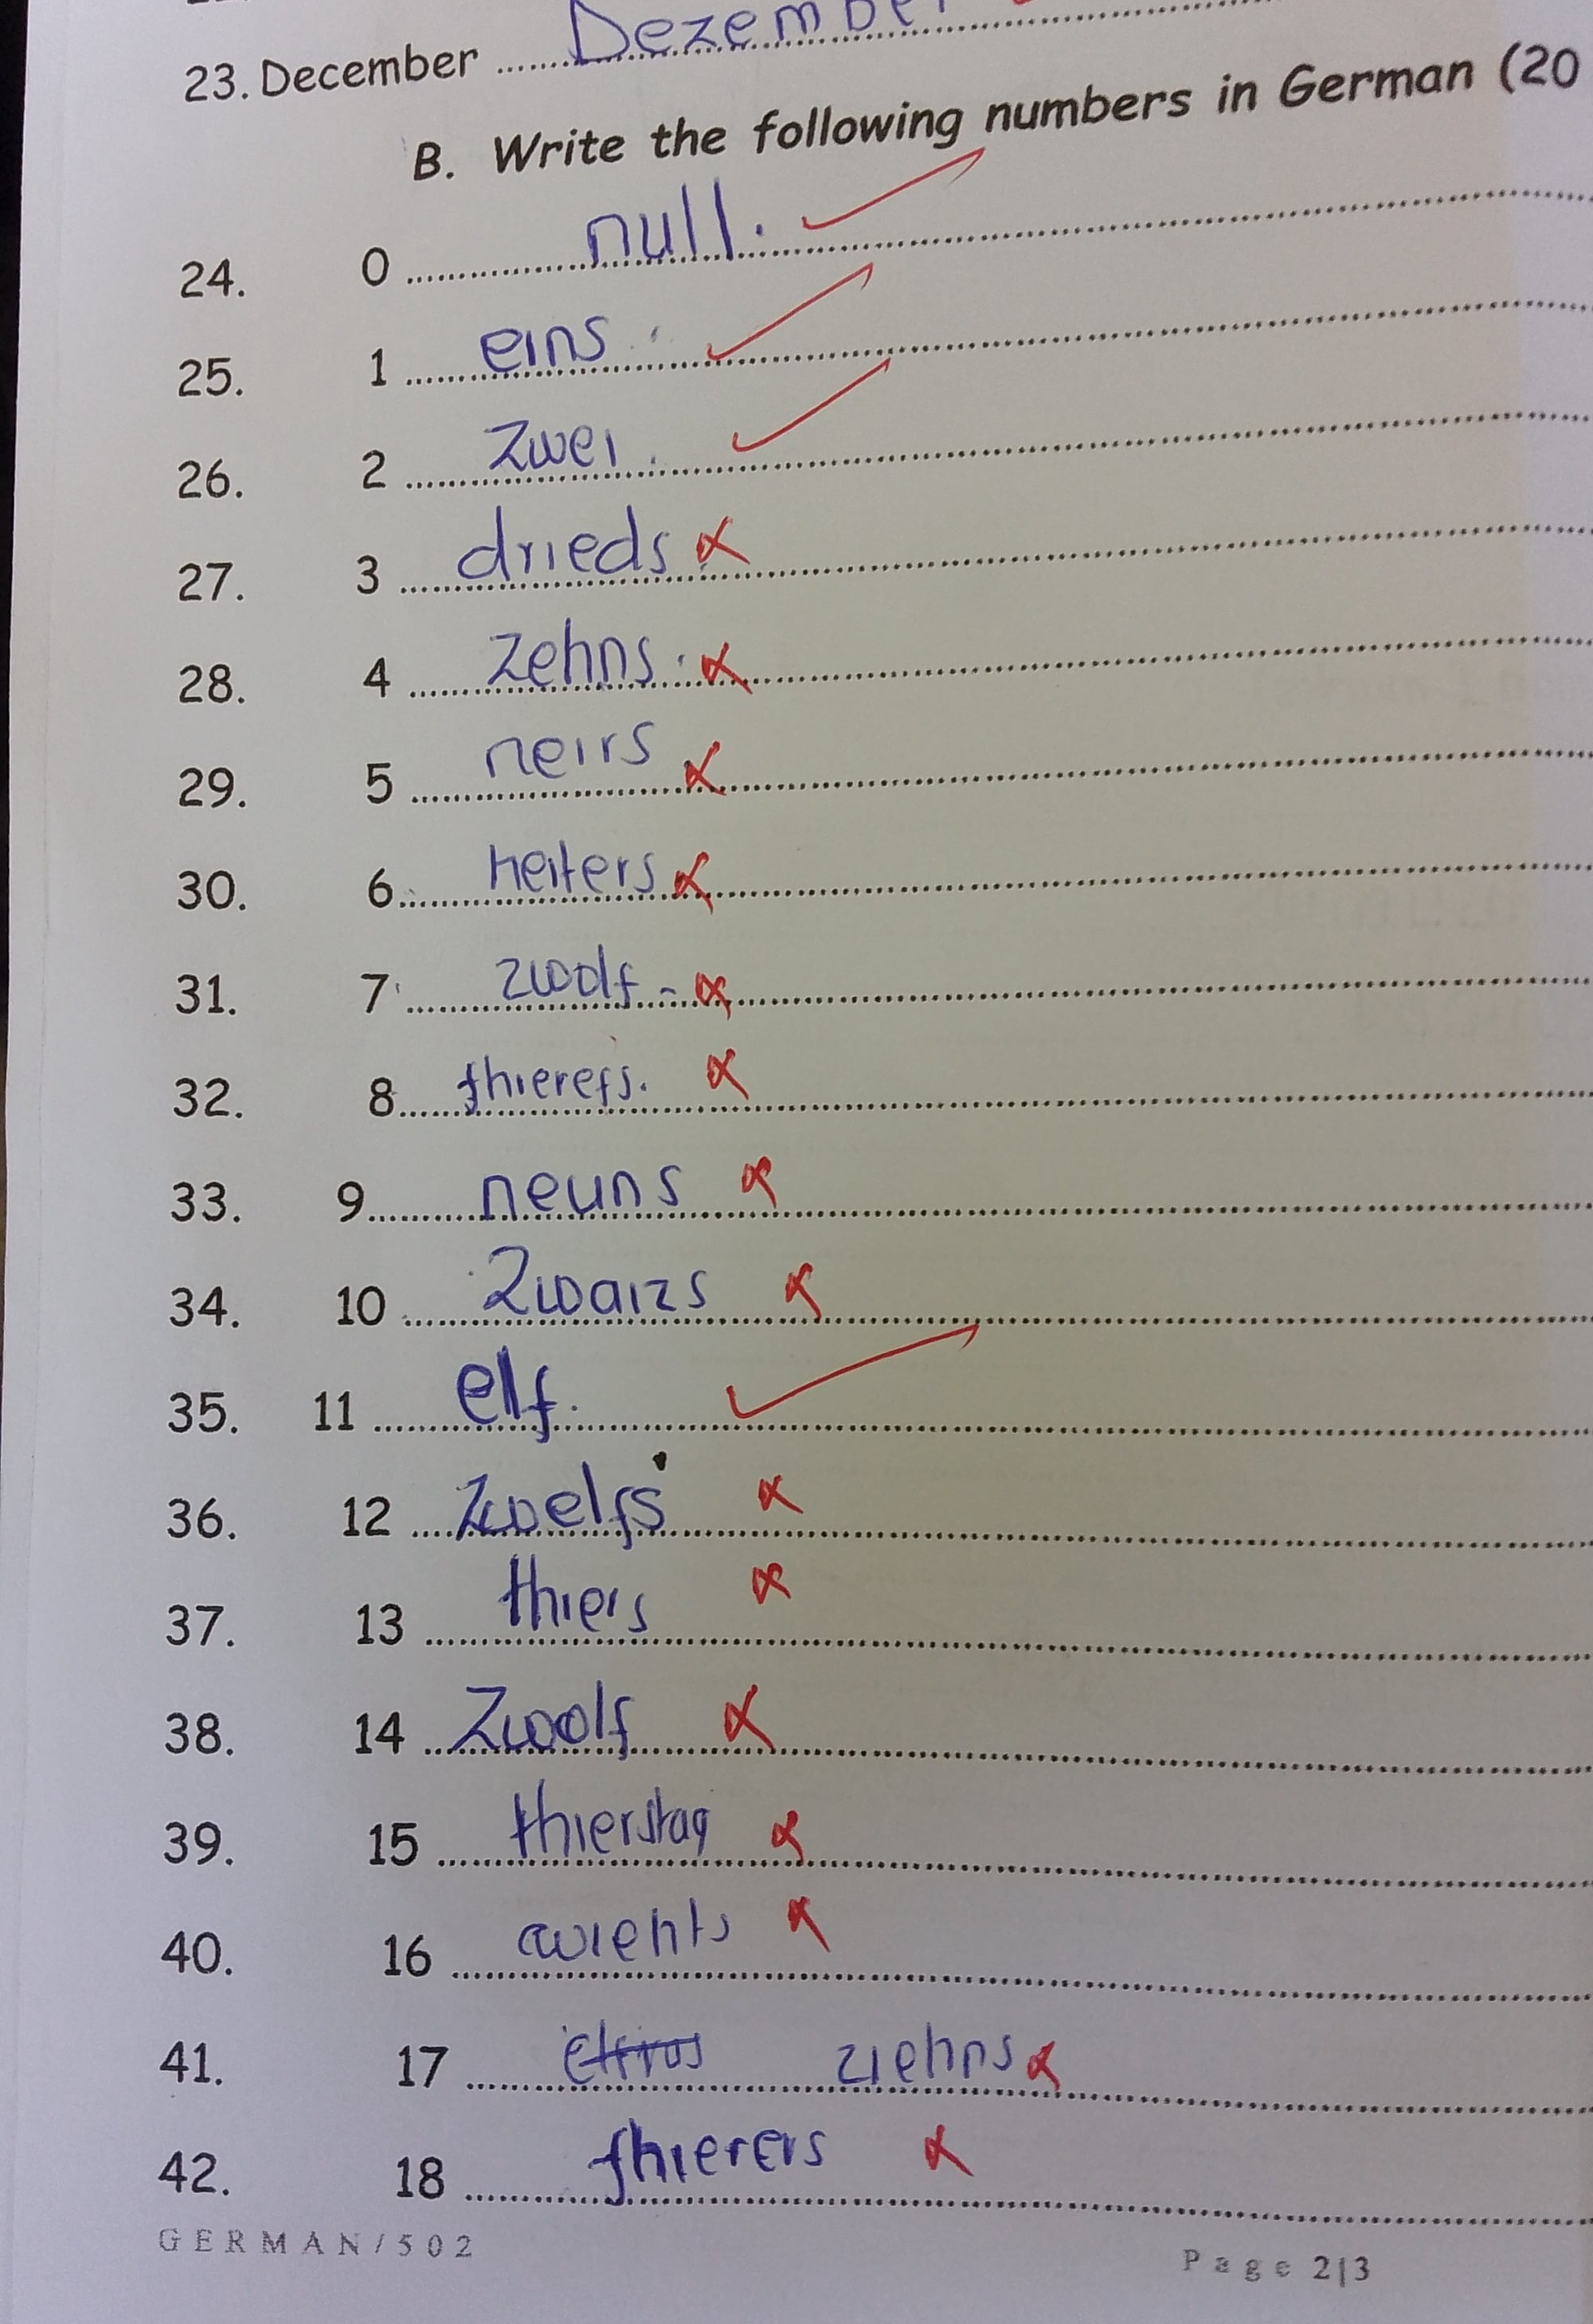 23. December Dezember
B. Write the following numbers in German (20
24. 0 null.
25. 1 eins
26. 2 zwei
27. 3 drieds
28. 4 zehns
29. 5 neirs
30. 6 heiters
31. 7 zwolf
32. 8 thierefs.
33. 9 neuns
34. 10 zwaizs
35. 11 elf.
36. 12 zwelfs
37. 13 thiers
38. 14 zwolf
39. 15 thierstag
40. 16
41. 17 ziehns
42. 18 fhierers
GERMAN/502
Page 2|3